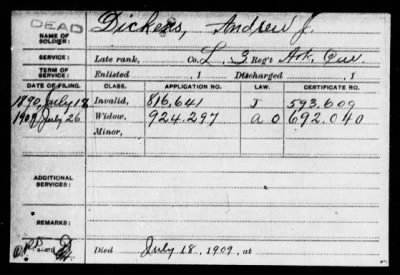 DEAD
NAME OF SOLDIER: Dickens, Andrew J.
SERVICE: Late rank, Co. L, 3 Reg't Ark. Cav.
TERM OF SERVICE: Enlisted , 1 Discharged , 1
DATE OF FILING. CLASS. APPLICATION NO. LAW. CERTIFICATE NO.
1890, July 18 Invalid, 816,641 J 593,609
1909, July 26 Widow, 924,297 a O 692,040
Minor,
ADDITIONAL SERVICES:
REMARKS:
Died July 18, 1909, at